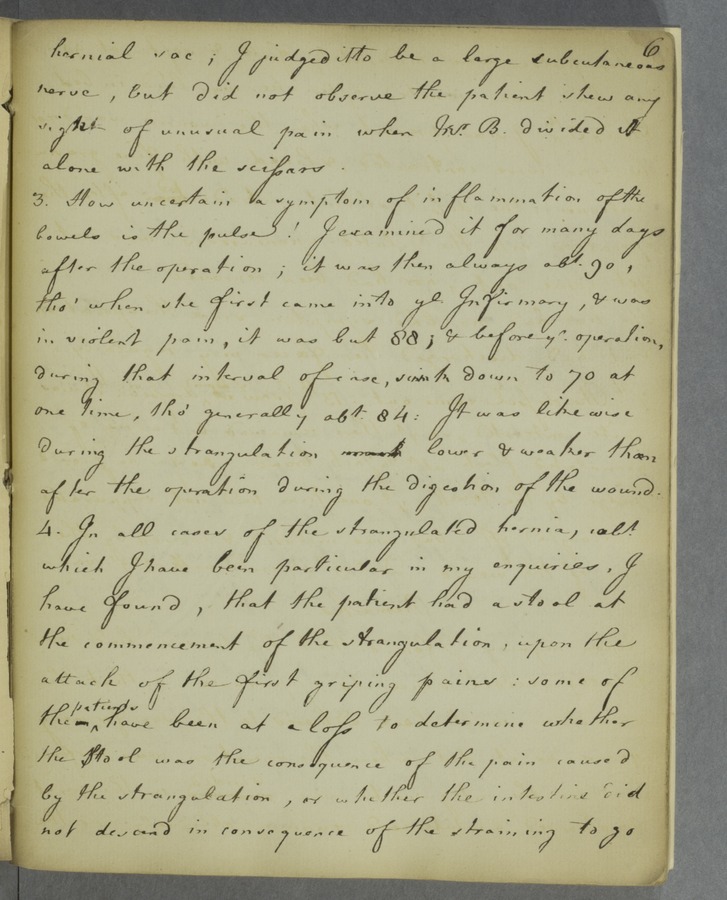 6
hernial sac ; I judged it to be a large subcutaneous
nerve , but did not observe the patient shew any
of unusual pain when Mr. B. divided it
alone with the scissars .
3. How uncertain a symptom of inflammation of the
bowels is the pulse ! I examined it for many days
after the operation ; it was then always abt. 90 ,
tho' when she first came into ye. Infirmary , & was
in violent pain , it was but 88 ; & before ye. operation,
during that interval of ease, sunk down to 70 at
one time, tho' generally abt. 84 : It was likewise
during the strangulation lower & weaker than
after the operation during the digestion of the wound.
4. In all cases of the strangulated hernia, abt.
which I have been particular in my enquiries, I
have found , that the patient had a stool at
the commencement of the strangulation , upon the
attack of the first griping pains : some of
patients
the have been at a loss to determine whether
the Stool was the consequence of the pain caused
by the strangulation , or whether the intestine did
not descend in consequence of the straining to go